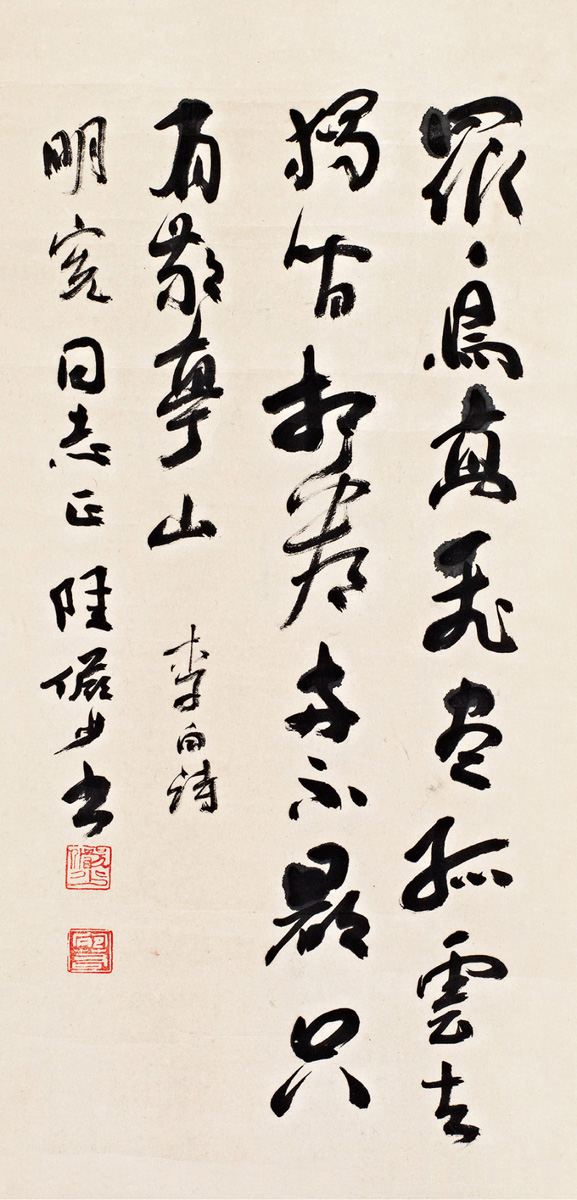 眾鳥高飛盡孤雲去
獨閒相看兩不厭只
有敬亭山 李白詩
明寬同志正 陸儼少書